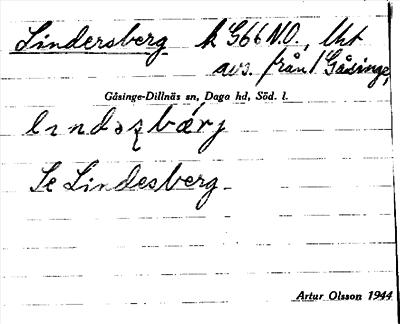 Lindersberg k G66 N.O., Utt
avs. från Gåsinge,
Gåsinge-Dillnäs sn, Daga hd, Söd. l.
Se Lindesberg
Artur Olsson 1944